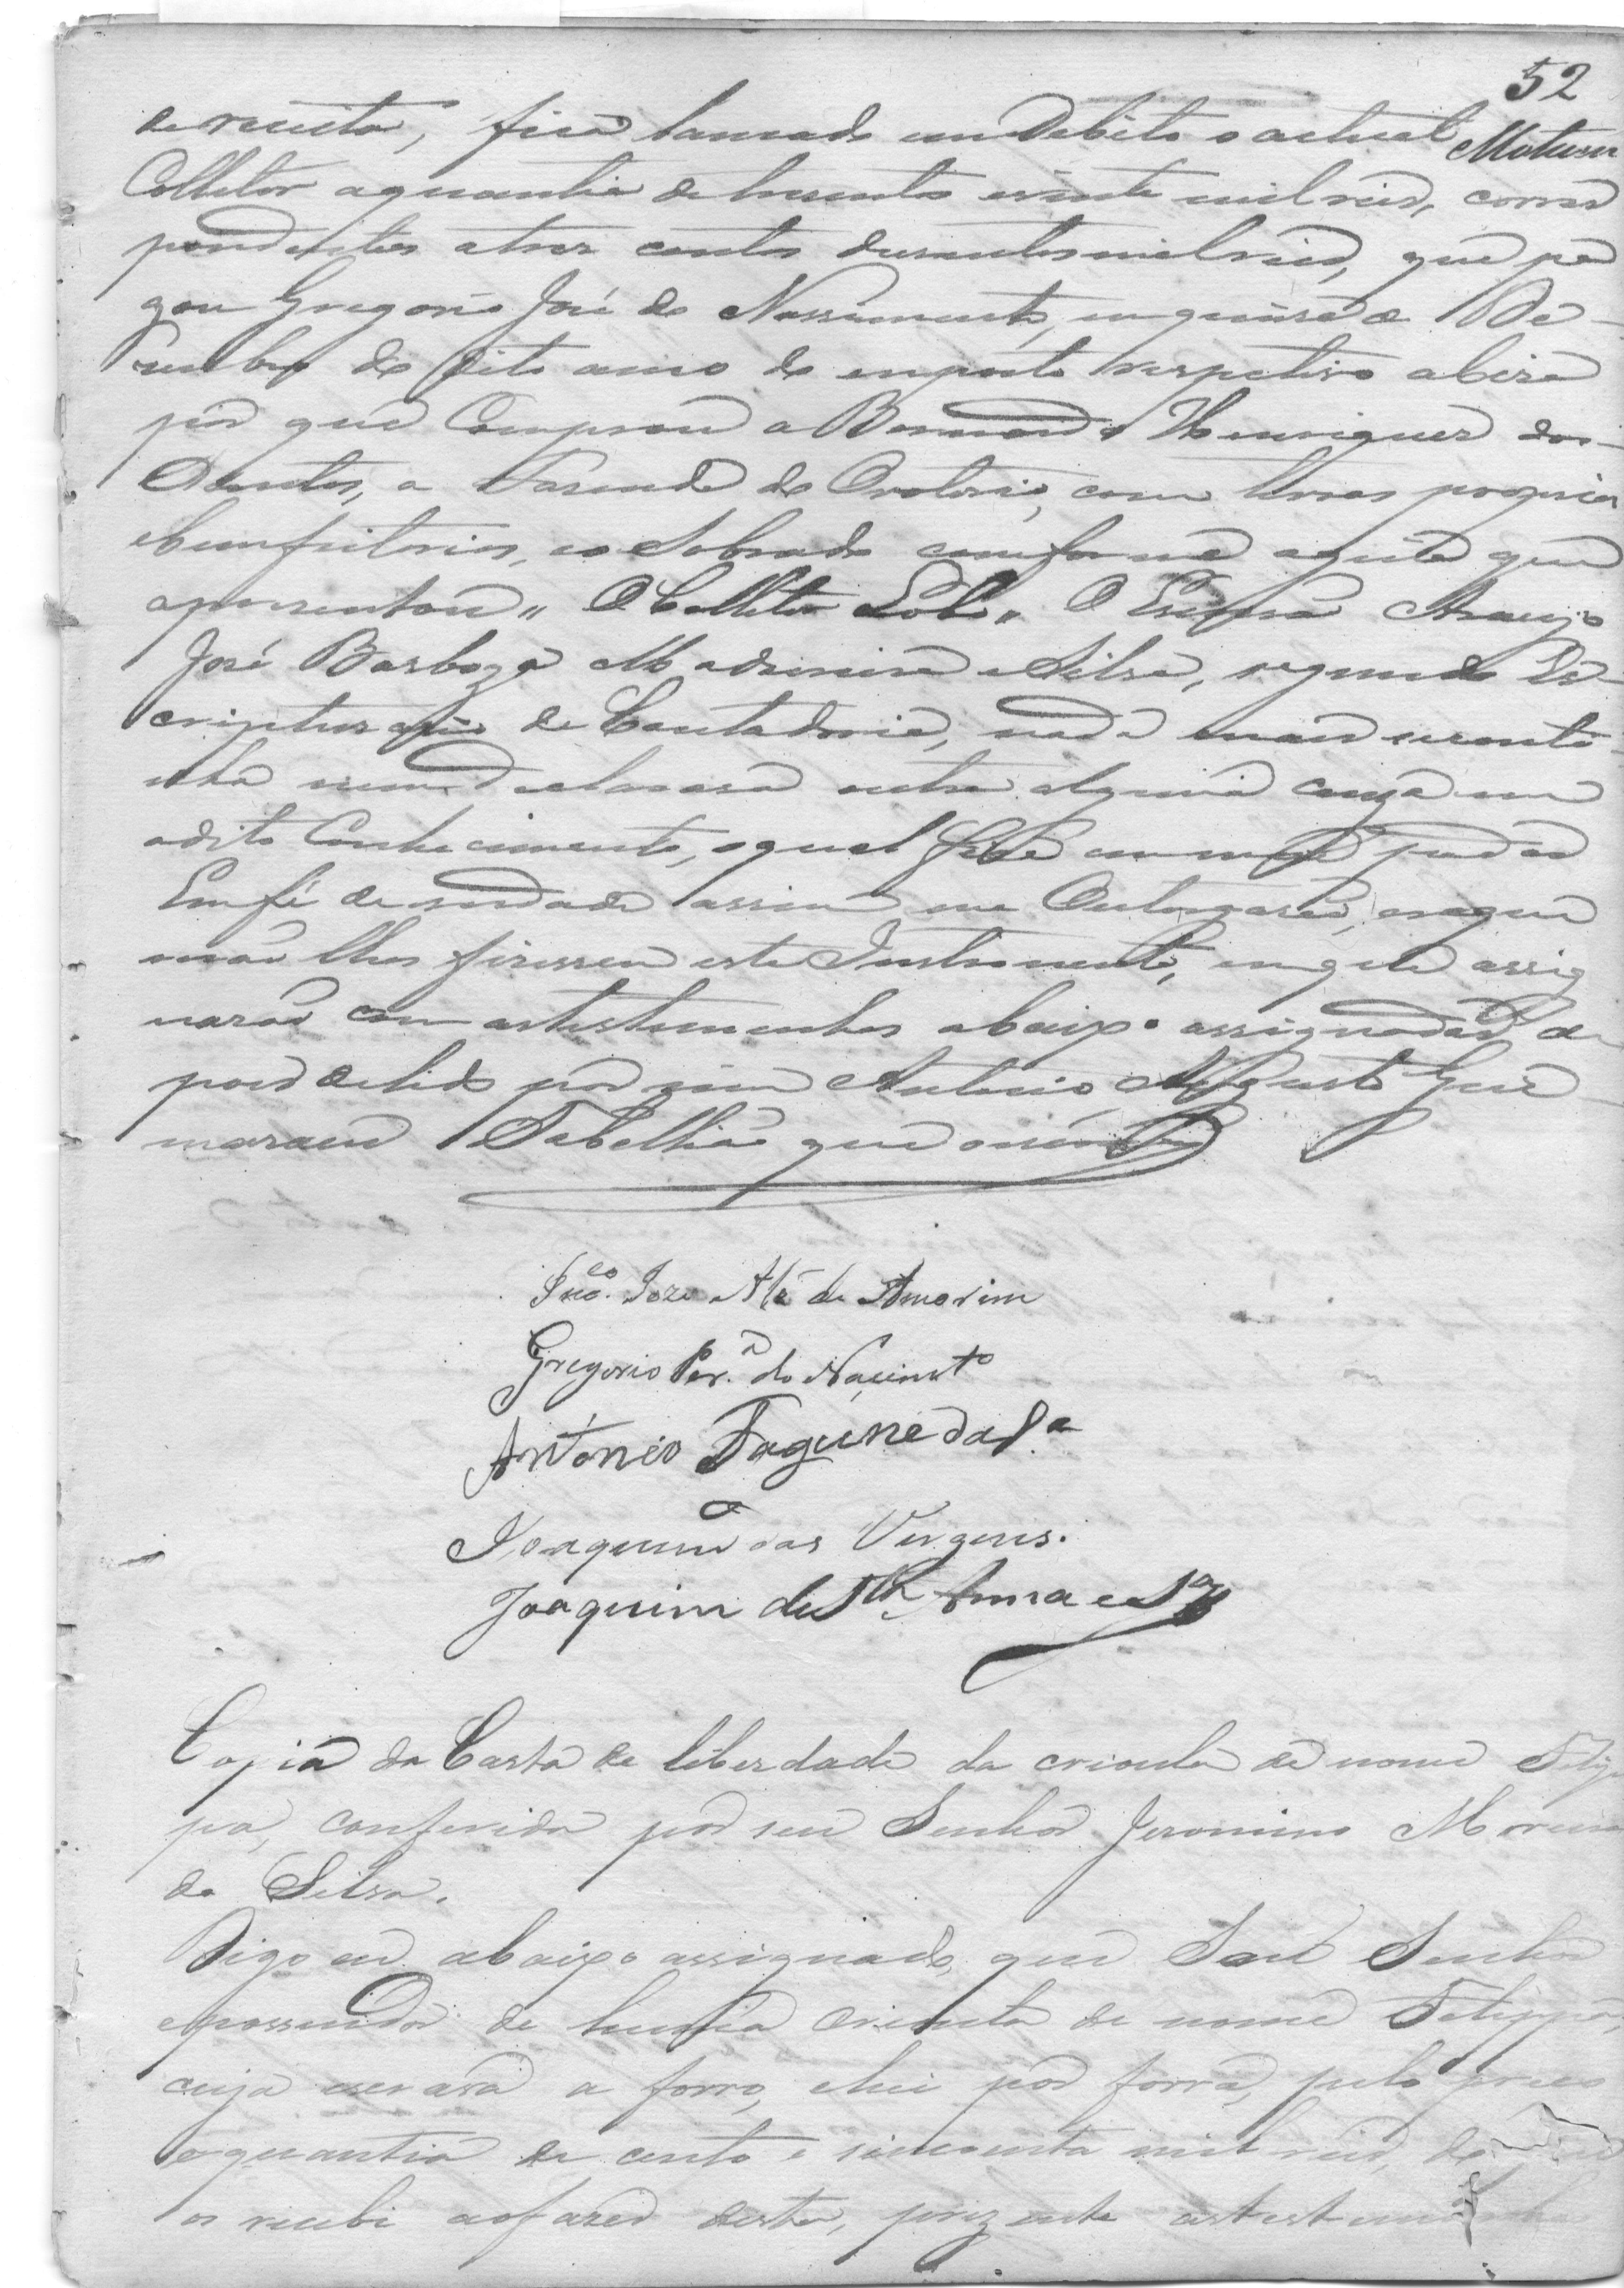 52
de receita, fica lançado em Debito o actual
Colletor a quantia de trezentos e vinte mil reis, corres
pondentes a tres contos duzentos mil reis, que pa
gou Gregorio José do Nascimento, em quinze de De-
zembro do dito anno do emposto respetivo a Ciza
por que Comprou a Bernardo Henriques dos
Santos, a Fazenda do Oratorio, com terras proprias
e bemfeitorias, e o Sobrado comforme a guia que
aprezentou " O Colletor Lobo " O Escrivão Araujo
José Barboza Madureira e Silva, segundo Es-
cripturario da Contadoria, nada mais se conti
nha nem declarava outra alguma couza em
o dito Conhecimento, o qual
Em fé de verdade assim me Outorgarão,
não lhes fizesse este Instrumento, em que assig
narão com as testemunhas abaixo assignadas de
pois de lido por mim Antonio Augusto Gui-
maraens Tabellião que o escrevy
Fco. Joze Alz de Amorim
Gregorio Per.ª do Nacimto
Antonio Fagunde da Sª
Joaquim das Virgens.
Joaquim de Sta Anna e Sza
Copia da Carta de liberdade da crioula de nome Felip
pa, conferida por seu Senhor Jeronimo Moreira
da Silva.
Digo eu abaixo assignado, que Sou Senhor
e possuidor de huma Crioula de nome Felippa,
cuja escrava a forro, e hei por forra, pelo preço
e quantia de cento e sincoenta mil reis,
os recebi ao fazer desta, prezente as testemunhas